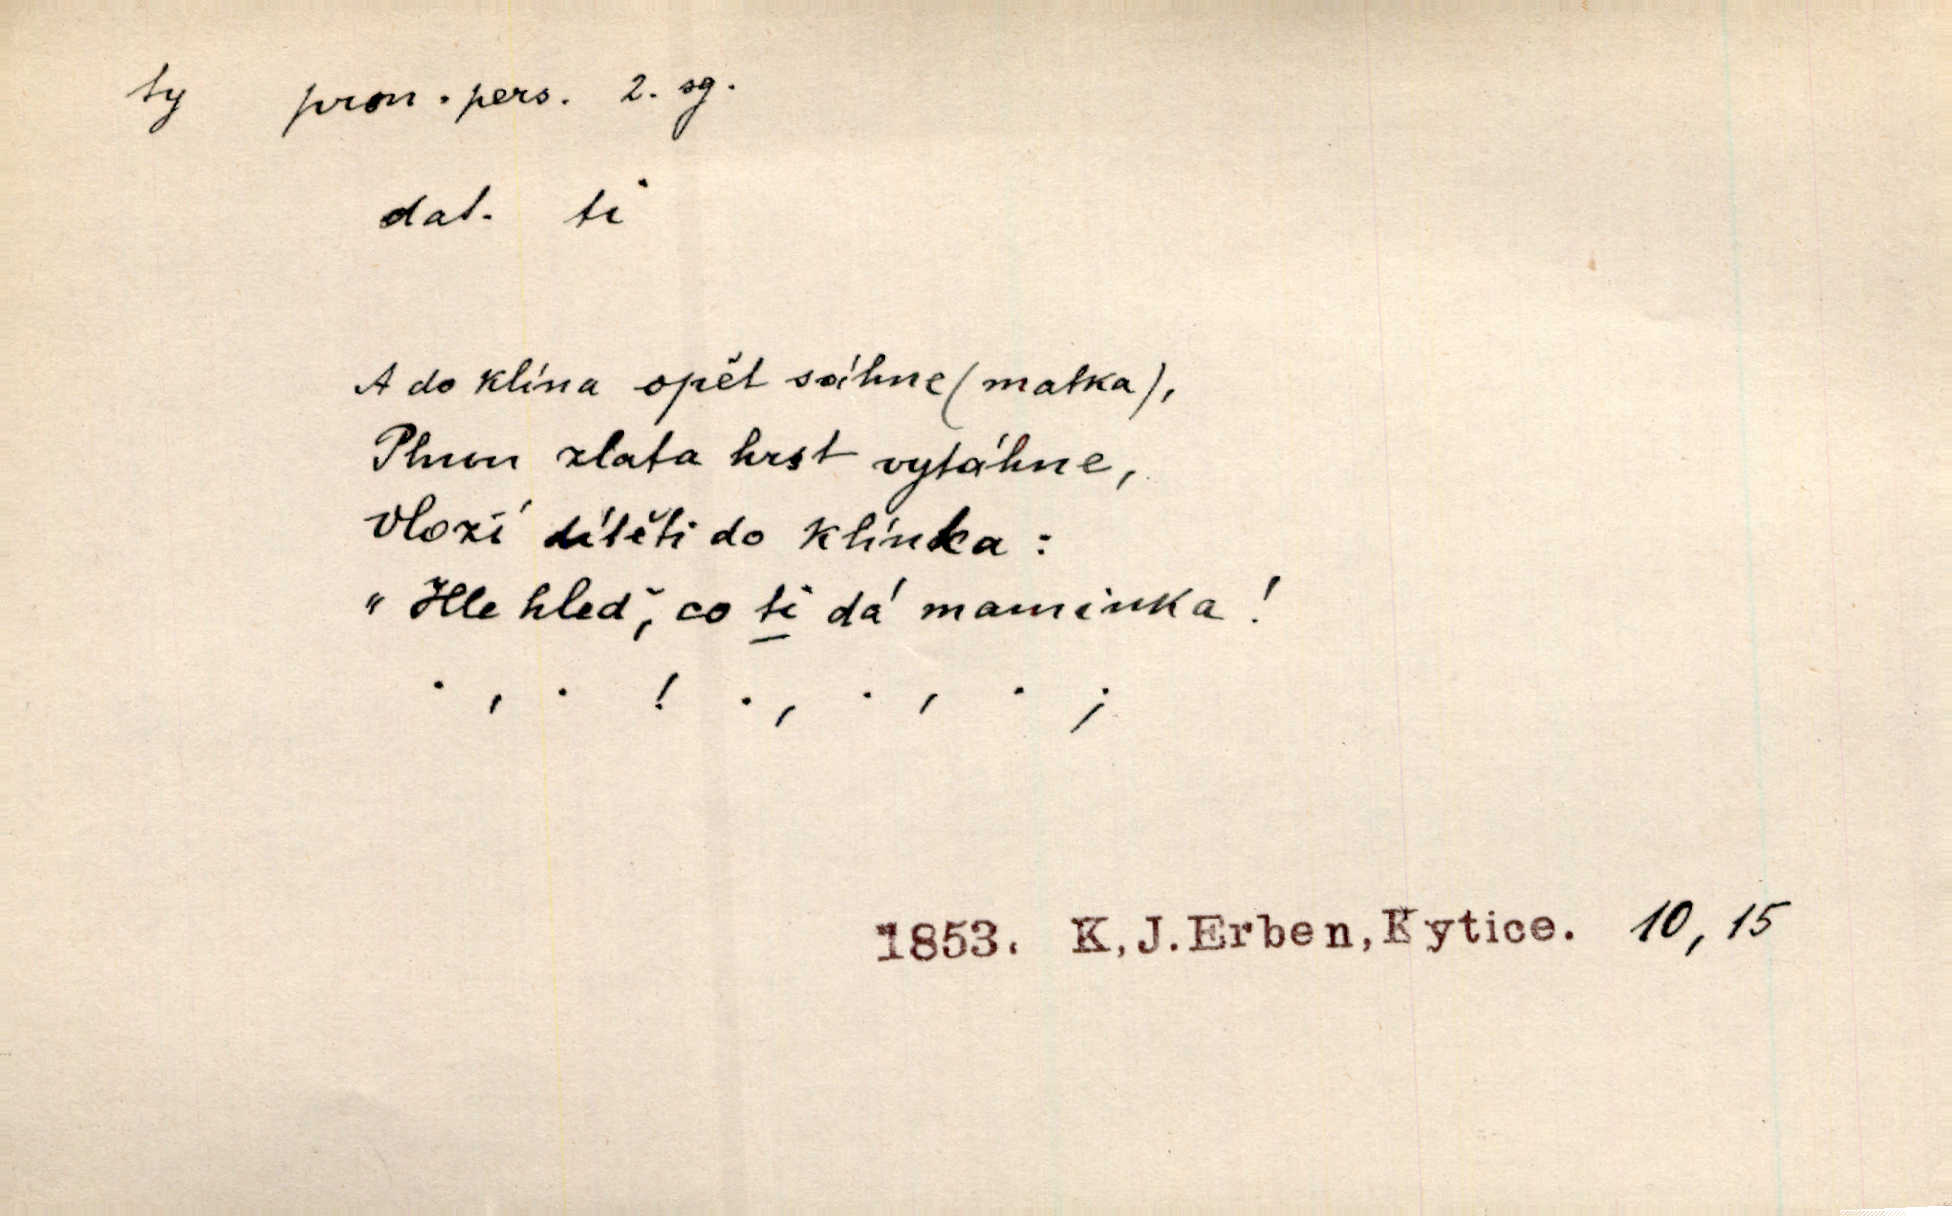 ty pron. pers. 2. sg.
dat. ti
A do klína opět sáhne (matka),
Plnou zlata hrst vytáhne,
Vloží dítěti do klínka:
„Hle hleď, co ti dá maminka!
. , . ! . , . , . ;
1853. K,J.Erben,Kytice. 10, 15